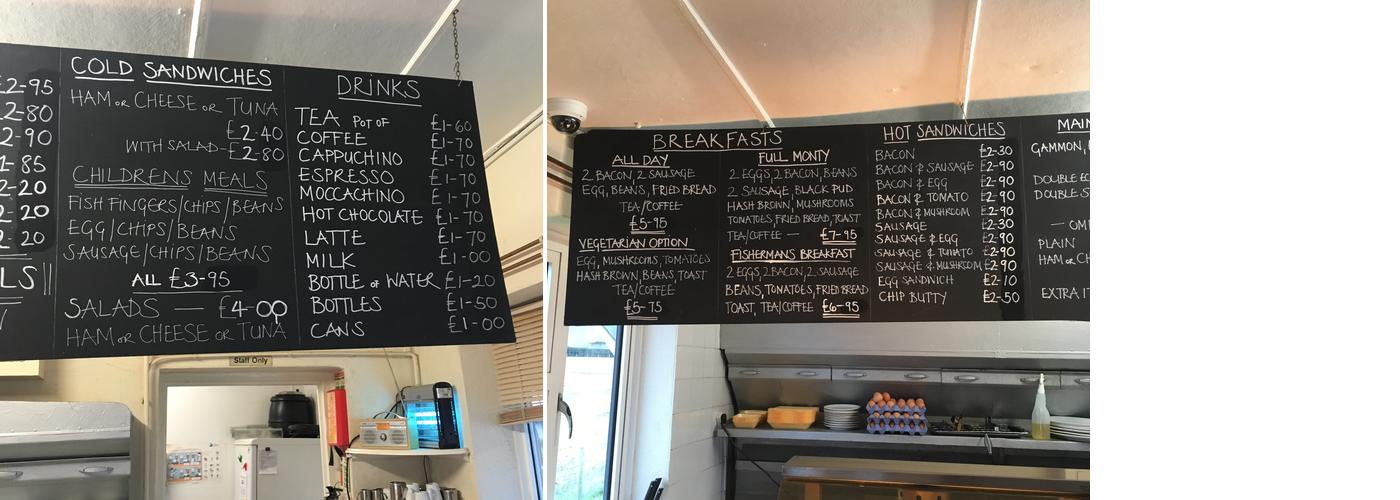 2-95
2-80
2-90
1-85
2-20
2-20
2-20
LS
COLD SANDWICHES
HAM or CHEESE or TUNA
£2-40
WITH SALAD - £2-80
CHILDRENS MEALS
FISH FINGERS/CHIPS/BEANS
EGG/CHIPS/BEANS
SAUSAGE/CHIPS/BEANS
ALL £3-95
SALADS — £4-00
HAM or CHEESE or TUNA
DRINKS
TEA POT OF £1-60
COFFEE £1-70
CAPPUCHINO £1-70
ESPRESSO £1-70
MOCCACHINO £1-70
HOT CHOCOLATE £1-70
LATTE £1-70
MILK £1-00
BOTTLE of WATER £1-20
BOTTLES £1-50
CANS £1-00
Staff Only
BREAKFASTS
ALL DAY
2 BACON, 2 SAUSAGE
EGG, BEANS, FRIED BREAD
TEA/COFFEE
£5-95
VEGETARIAN OPTION
EGG, MUSHROOMS, TOMATOES
HASH BROWN, BEANS, TOAST
TEA/COFFEE
£5-75
FULL MONTY
2 EGGS, 2 BACON, BEANS
2 SAUSAGE, BLACK PUD
HASH BROWN, MUSHROOMS
TOMATOES, FRIED BREAD, TOAST
TEA/COFFEE — £7-95
FISHERMANS BREAKFAST
2 EGGS, 2 BACON, 2 SAUSAGE
BEANS, TOMATOES, FRIED BREAD
TOAST, TEA/COFFEE £6-95
HOT SANDWICHES
BACON £2-30
BACON & SAUSAGE £2-90
BACON & EGG £2-90
BACON & TOMATO £2-90
BACON & MUSHROOM £2-90
SAUSAGE £2-30
SAUSAGE & EGG £2-90
SAUSAGE & TOMATO £2-90
SAUSAGE & MUSHROOM £2-90
EGG SANDWICH £2-10
CHIP BUTTY £2-50
MAIN
GAMMON,
DOUBLE EG
DOUBLE S
— OM
PLAIN
HAM or CH
EXTRA IT